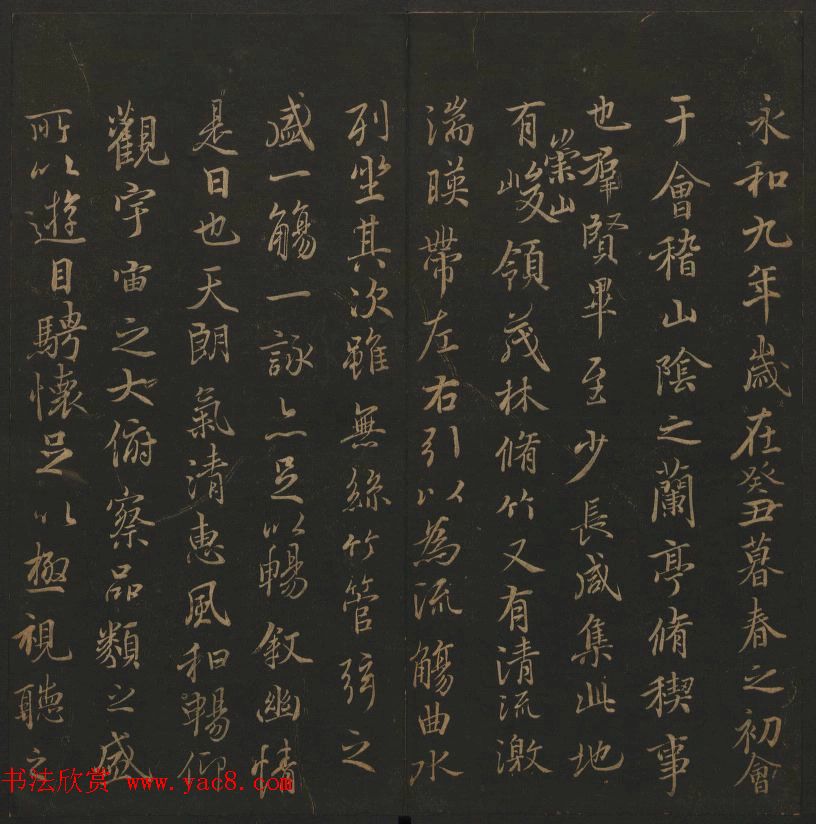 永和九年歲在癸丑暮春之初會
于會稽山陰之蘭亭脩稧事
也羣賢畢至少長咸集此地
有崇山峻領茂林脩竹又有清流激
湍暎帶左右引以為流觴曲水
列坐其次雖無絲竹管弦之
盛一觴一詠亦足以暢敘幽情
是日也天朗氣清惠風和暢仰
觀宇宙之大俯察品類之盛
所以遊目騁懷足以極視聽之
书法欣赏 www.yac8.com